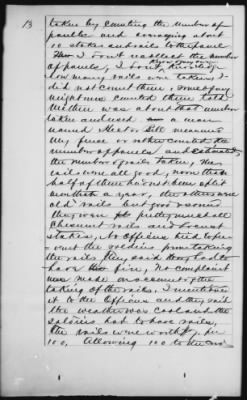 13
taken by counting the number of
panels and averaging about
10 stakes and rails to the panel
I don't recollect the number
of panels, I don't know
how many rails were taken. I
did not count them, some of our
neighbors counted them, told
me there was about that number
taken and used a man
named Hector Sill measured
my fence or rather counted the
number of panels and estimated
the number of rails taken, the
rails were all good, more than
half of them had not been split
more than a year, the others were
old rails but good & sound
they were pretty much all
Chesnut rails and Locust
stakes. No officers tried to pre-
vent the soldiers from taking
the rails, they said they had to
have fire, No complaint
was made on account of the
taking of the rails, I mentioned
it to the officers and they said
the weather was cold and the
soldiers had to have rails,
the rails were worth $7. per
100, allowing 100 to the